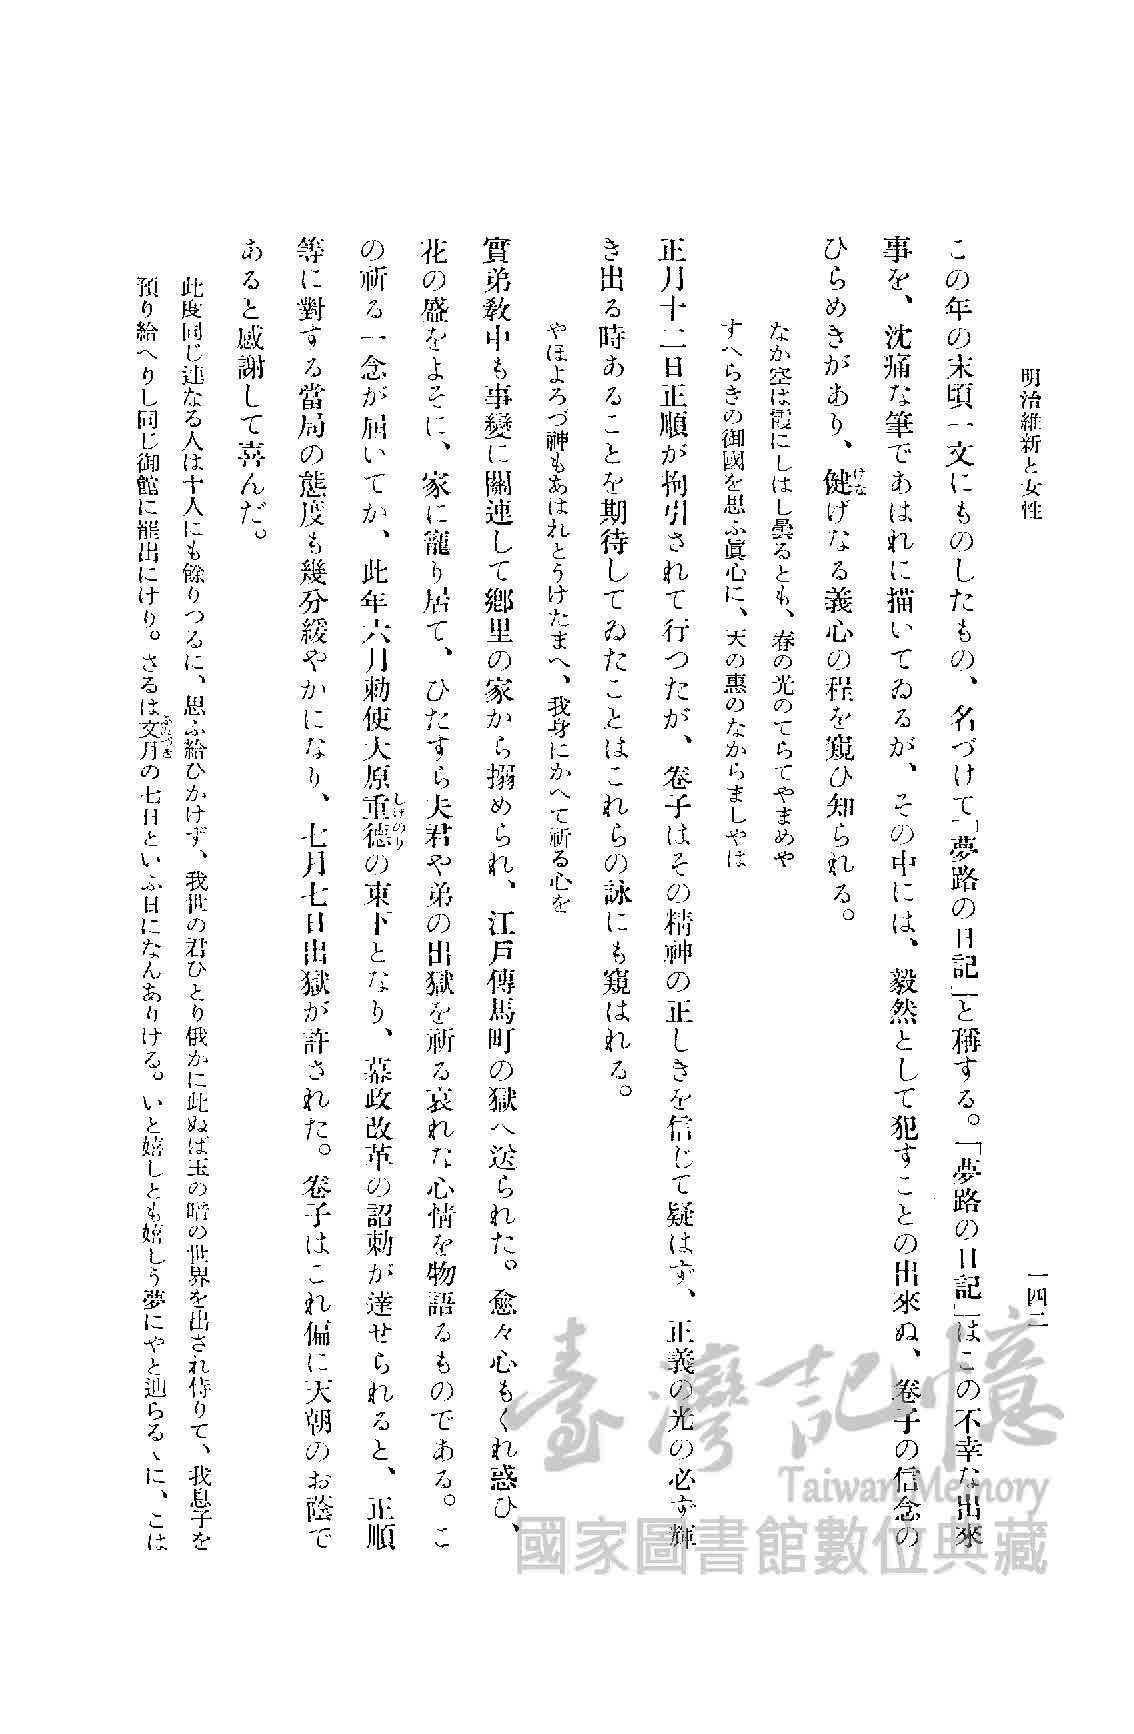 明治維新と女性
一四二
この年の末頃一文にものしたもの、名づけて「夢路の日記」と稱する。「夢路の日記」はこの不幸な出來
事を、沈痛な筆であはれに描いてゐるが、その中には、毅然として犯すことの出來ぬ、卷子の信念の
ひらめきがあり、健げなる義心の程を窺ひ知られる。
けな
なか空は霞にしはし曇るとも、春の光のてらてやまめや
すへらきの御國を思ふ眞心に、天の惠のなからましやは
正月十二日正順が拘引されて行つたが、卷子はその精神の正しきを信じて疑はず、正義の光の必ず輝
き出る時あることを期待してゐたことはこれらの詠にも窺はれる。
やほよろづ神もあはれとうけたまへ、我身にかへて祈る心を
實弟敎中も事變に關連して鄕里の家から搦められ、江戸傳馬町の獄へ送られた。愈々心もくれ惑ひ、
花の盛をよそに、家に寵り居て、ひたすら夫君や弟の出獄を祈る哀れな心情を物語るものである。こ
の祈る一念が屆いてか、此年六月勅使大原重德の東下となり、幕政改革の詔勅が達せられると、正順
しげのり
等に對する當局の態度も幾分緩やかになり、七月七日出獄が許された。卷子はこれ偏に天朝のお蔭で
あると感謝して喜んだ。
此度同じ連なる人は十人にも餘りつるに、思ふ給ひかけず、我世の君ひとり俄かに此ぬば玉の暗の世界を出され侍りて、我息子を
預り給へりし同じ御館に罷出にけり。さるは文月の七日といふ日になんありける。いと嬉しとも嬉しう夢にやと辿らるゝに、こは
ふみづき
臺灣記憶
Taiwan Memory
國家圖書館數位典藏